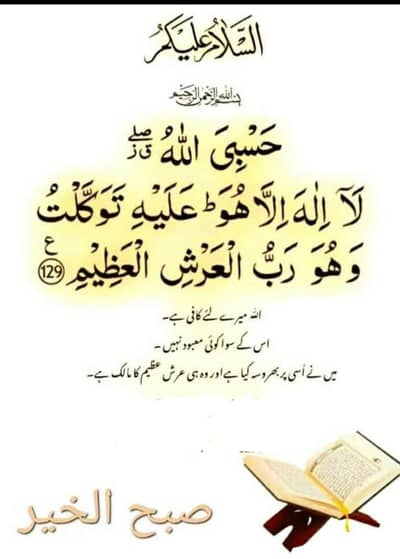 السَّلَامُ عَلَيْكُمْ
بِسْمِ اللهِ الرَّحْمٰنِ الرَّحِيْمِ
حَسْبِیَ اللهُ ۖ ق ز
لَاۤ اِلٰهَ اِلَّا هُوَ ؕ عَلَيْهِ تَوَكَّلْتُ
وَهُوَ رَبُّ الْعَرْشِ الْعَظِيْمِ ع 129
اللہ میرے لئے کافی ہے۔
اس کے سوا کوئی معبود نہیں۔
میں نے اُسی پر بھروسہ کیا ہے اور وہ ہی عرش عظیم کا مالک ہے۔
صبح الخير